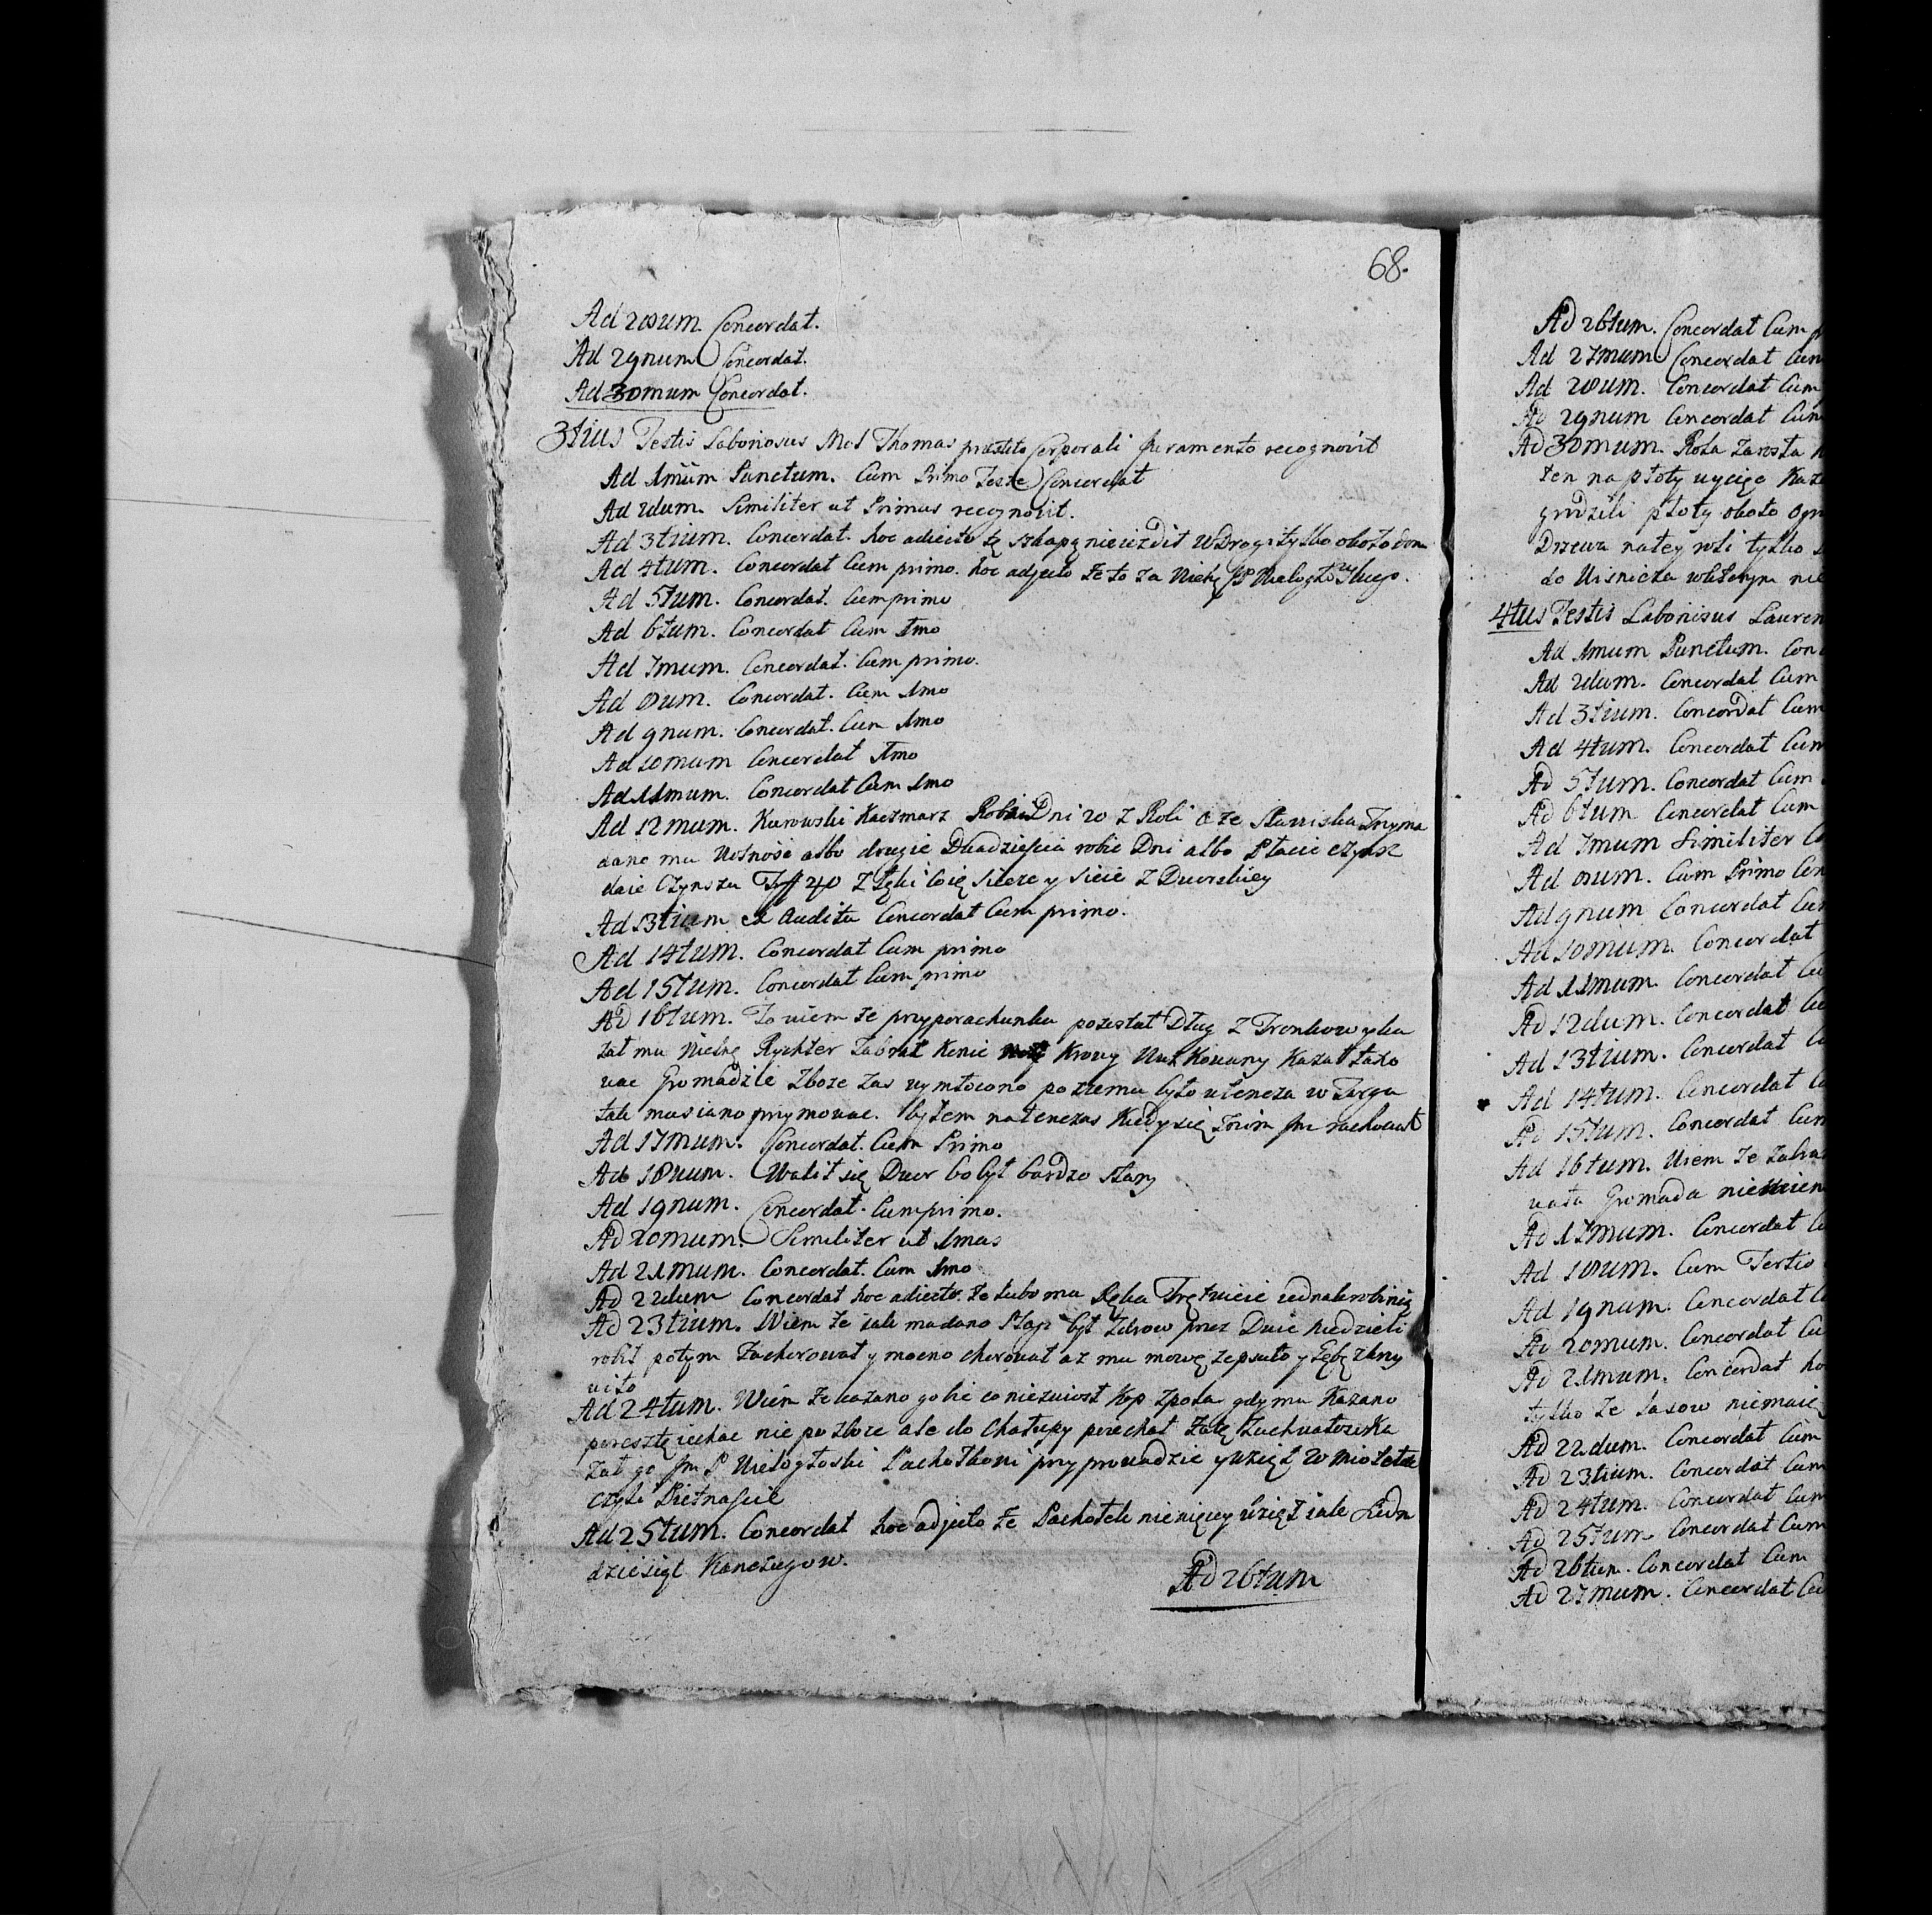 68.
Ad 28vum. Concordat.
Ad 29num Concordat.
Ad 30mum Concordat.
3tius Testis Laboriosus Thomas præstito Corporali Juramento recognovit
Ad 1mum Punctum. Cum Primo Teste Concordat
Ad 2dum. Similiter ut Primus recognovit.
Ad 3tium. Concordat. hoc adiecto tę szkapę nie iezdił w Drogi tylko około dom
Ad 4tum. Concordat Cum primo. hoc adjecto że to za
Ad 5tum. Concordat. Cum primo
Ad 6tum. Concordat Cum 1mo
Ad 7mum. Concordat. Cum primo.
Ad 8vum. Concordat. Cum 1mo
Ad 9num. Concordat. Cum 1mo
Ad 10mum Concordat 1mo
Ad 11mum. Concordat Cum 1mo
Ad 12mum. Kurowski Kaczmarz Dni 20 z Roli
dano mu Wolność albo drugie Dwadzieścia robić Dni albo Płacić czynsz
daie Czynszu 40 z Łęki się siecze y sieie z Dworskiey
Ad 13tium ex Auditu Concordat Cum primo.
Ad 14tum. Concordat Cum primo
Ad 15tum. Concordat Cum primo
Ad 16tum. To wiem że przy porachunku pozostał Dług z
zał mu Rychter zabrał Konie Krowy Woz Kowany Kazał taxo
wac Gromadzie zboze zas wymłocono po czemu było w Targu
tak musiano przymowac. byłem na tenczas Kiedy się z nim Jm rachował
Ad 17mum. Concordat. Cum Primo
Ad 18vum. Walił się Dwor bo był bardzo stary
Ad 19num. Concordat. Cum primo.
Ad 20mum. Similiter ut 1mus
Ad 21mum. Concordat. Cum 1mo
Ad 22dum Concordat hoc adiecto. że lubo mu Ręka iednak robi nią
Ad 23tium. Wiem że iak mu dano był zdrow przez Dwie Niedzieli
robił potym zachorował y mocno chorował az mu mowę zepsuło y Gębę zkrzy
wiło
Ad 24tum. Wiem że kazano go bić co nie zwiozł Kop z pola gdy mu Kazano
po resztę iechac nie po zboze ale do Chałupy poiechał
zał go Jm P Wielogłoski Pachołkowi przyprowadzic y wziął
czyli Piętnaście
Ad 25tum. Concordat hoc adjecto że Pachołek nie więcy wziął iak Siedm
dziesiąt Kanczugow.
Ad 26tum
Ad 26tum. Concordat Cum
Ad 27mum. Concordat Cum
Ad 28vum. Concordat Cum
Ad 29num Concordat Cum
Ad 30mum. Rola zarosła
ten na płoty wycięc
grodzili płoty około
Drzewa na tey roli tylko
do Wisnicza w ktorym nie
4tus Testis Laboriosus Lauren
Ad 1mum Punctum. Con
Ad 2dum. Concordat Cum
Ad 3tium. Concordat Cum
Ad 4tum. Concordat Cum
Ad 5tum. Concordat Cum
Ad 6tum Concordat Cum
Ad 7mum Similiter
Ad 8vum. Cum Primo Con
Ad 9num Concordat Cum
Ad 10mum. Concordat
Ad 11mum. Concordat Cu
Ad 12dum. Concordat Cu
Ad 13tium. Concordat C
Ad 14tum. Concordat C
Ad 15tum. Concordat Cum
Ad 16tum. Wiem że zabra
wała Gromada
Ad 17mum. Concordat C
Ad 18vum. Cum Tertio
Ad 19num. Concordat C
Ad 20mum. Concordat Cu
Ad 21mum. Concordat ho
tylko że lasow nie maią
Ad 22dum. Concordat Cum
Ad 23tium. Concordat Cum
Ad 24tum. Concordat Cum
Ad 25tum Concordat Cum
Ad 26tum. Concordat Cum
Ad 27mum. Concordat Cu